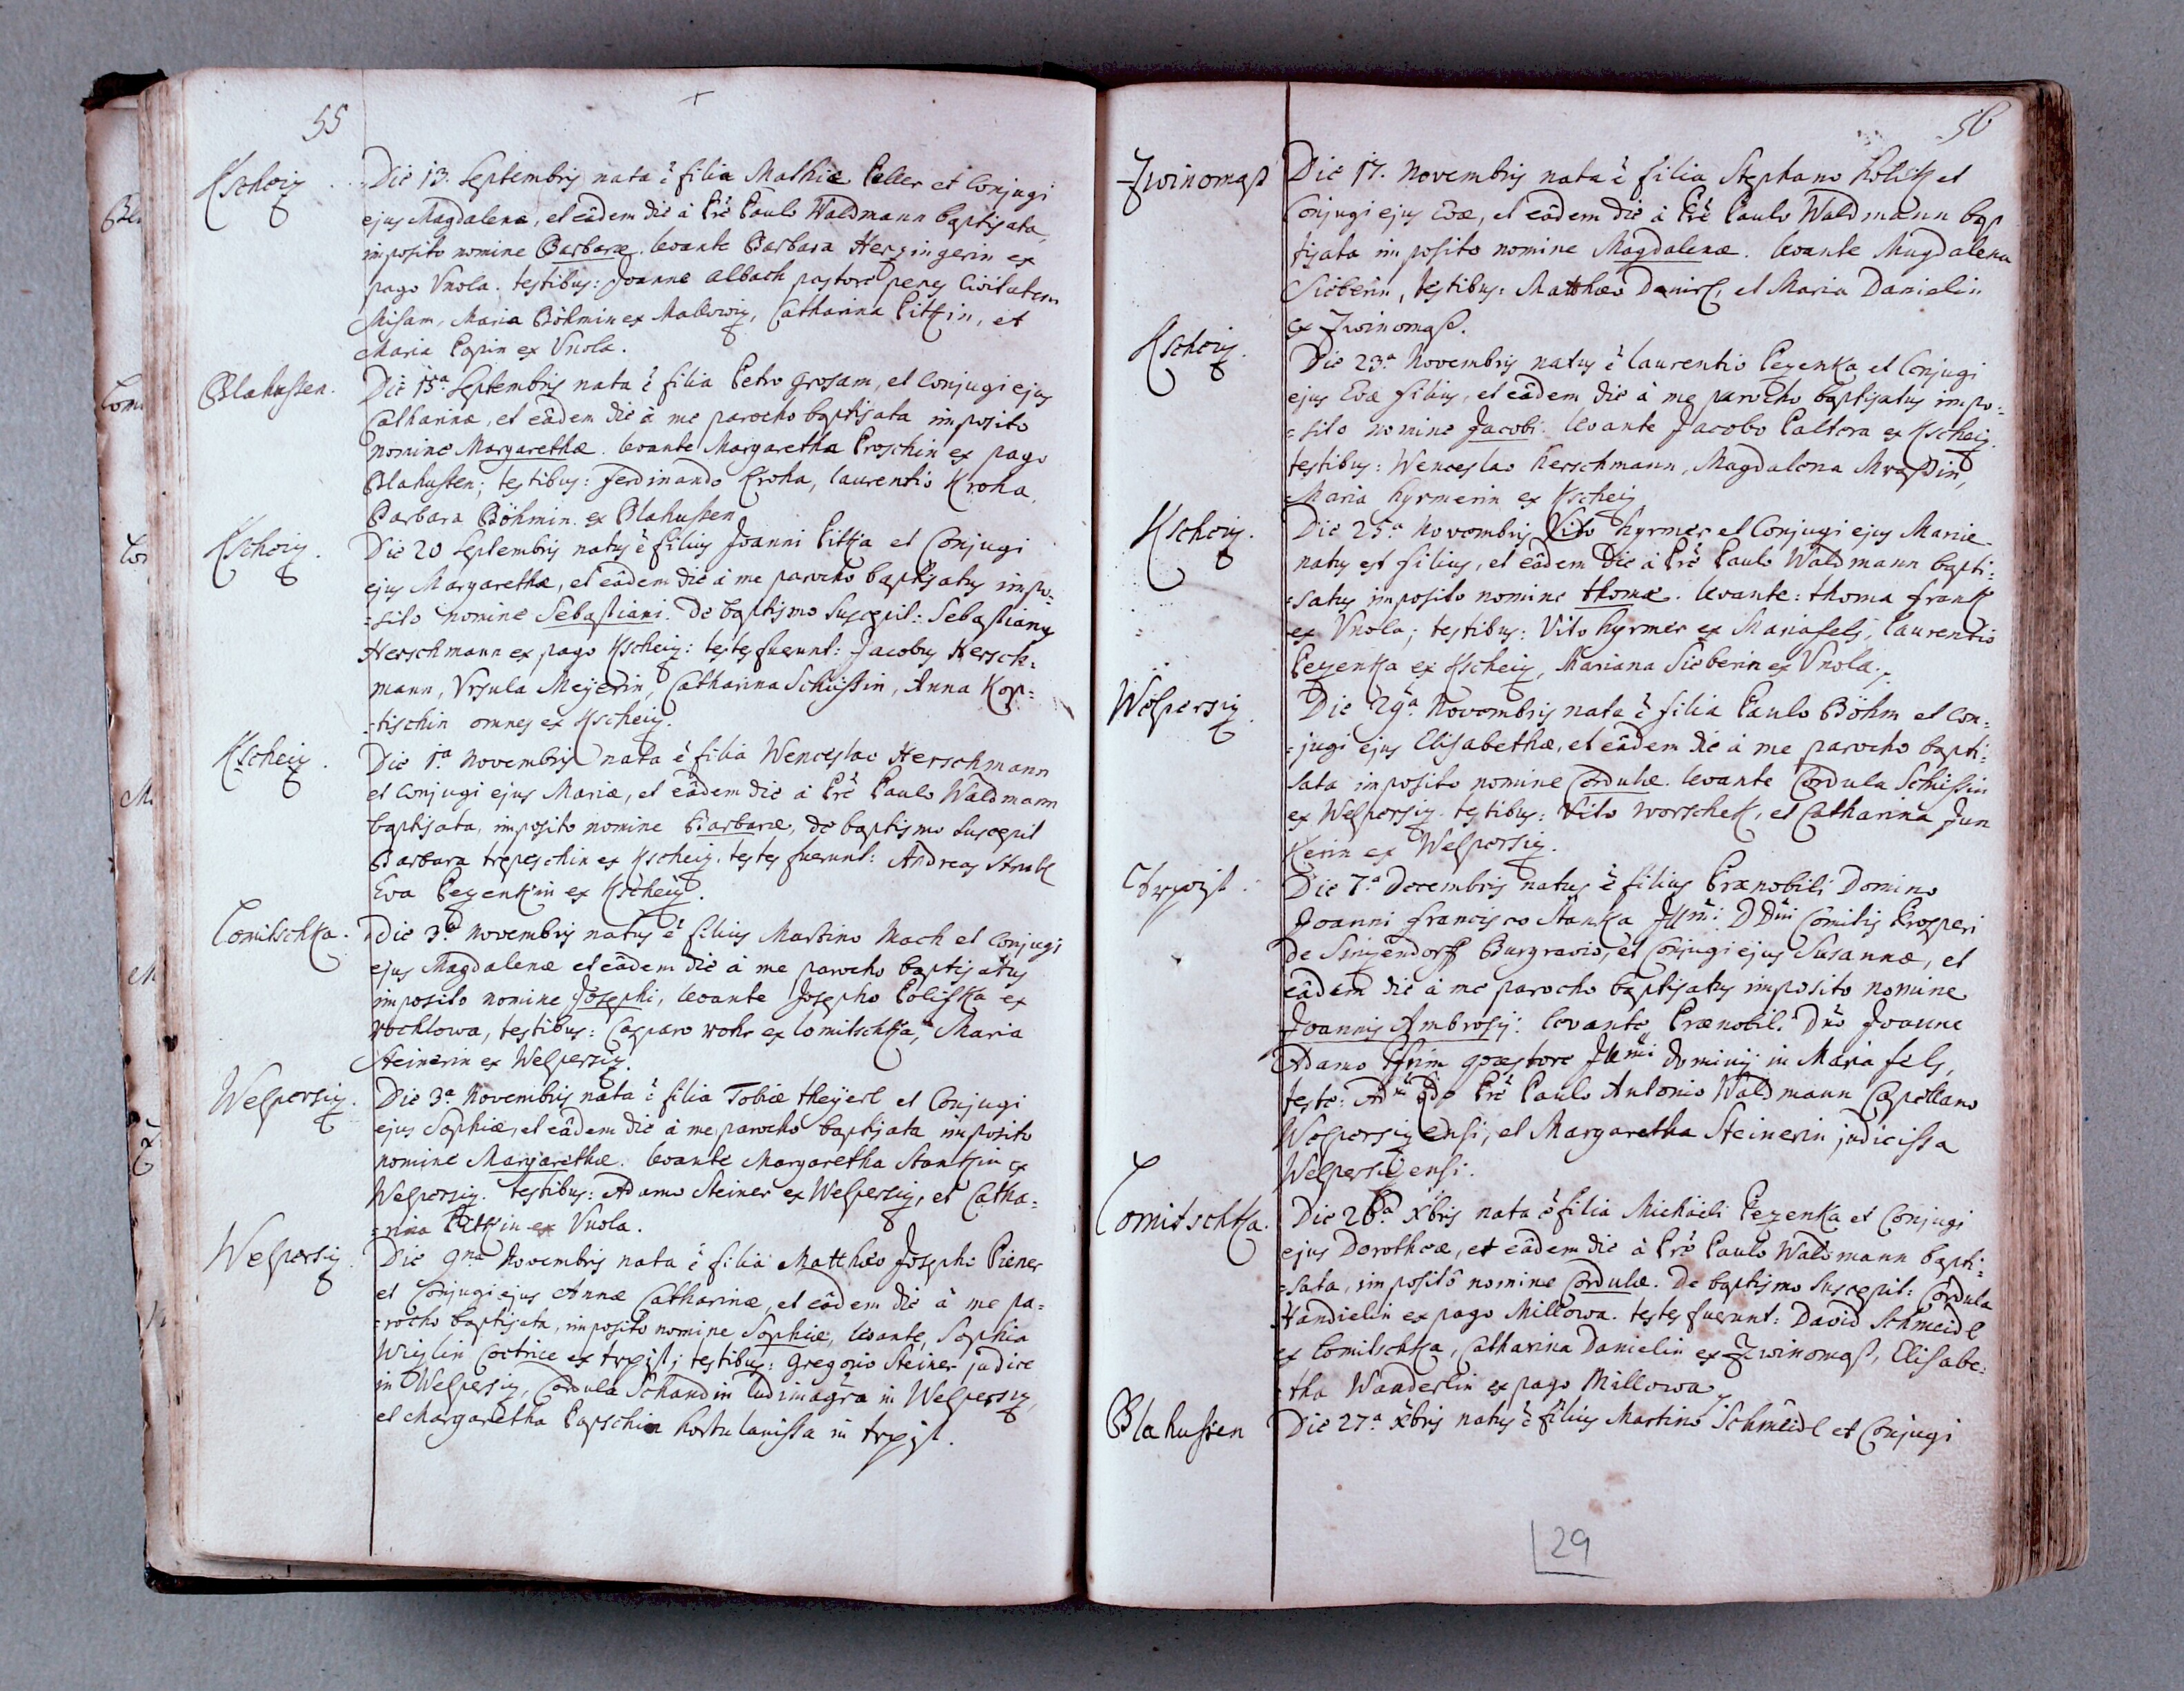 55
Kscheiz. Die 13. Septembris nata ē filia Mathiæ Peller et Conjugi
ejus Magdalenæ, et eâdem die à Prē Paulo Waldmann baptisata,
imposito nomine Barbaræ. levante Barbara Herzingerin ex
pago Vnola. testibus: Joanne Albach pastore penes Civitatem
Misam, Maria Böhmin ex Mallowiz, Catharina Pitkin, et
Maria Papin ex Vnola.
Blahussen. Die 15a Septembris nata ē filia Petro Grosam, et Conjugi ejus
Catharinæ, et eâdem die à me parocho baptisata imposito
nomine Margarethæ. levante Margaretha Proschin ex pago
Blahussen; testibus: Ferdinando Kroha, laurentio Kroha,
Barbara Böhmin ex Blahussen
Kscheiz. Die 20 Septembris natus ē filius Joanni Pitka et Conjugi
ejus Margarethæ, et eâdem die à me parocho baptisatus impo=
=sito nomine Sebastiani. De baptismo suscepit: Sebastianus
Herschmann ex pago Kscheiz: testes fuerunt: Jacobus Hersch=
mann, Vrsula Meyerin, Catharina Schüssin, Anna Kop=
=tischin omnes ex Kscheiz.
Kscheiz. Die 1a Novembris nata ē filia Wenceslao Herschmann
et Conjugi ejus Mariæ, et eâdem die à Prē Paulo Waldmann
baptisata, imposito nomine Barbaræ, de baptismo suscepit
Barbara trepeschin ex Kscheiz. testes fuerunt: Andreas
Eva Pezenkin ex Kscheiz.
Lomitschka. Die 3a Novembris natus ē filius Martino Mach et Conjugi
ejus Magdalenæ et eâdem die à me parocho baptisatus
imposito nomine Josephi, levante Josepho Polifka ex
rochlowa, testibus: Casparo rohr ex lomitschka, Maria
Steinerin ex Welperziz.
Welpersiz. Die 3a Novembris nata ē filia Tobiæ theyerl et Conjugi
ejus Sophiæ, et eâdem die à me parocho baptisata imposito
nomine Margarethæ. levante Margaretha Stankin ex
Welpersiz. testibus: Adamo Steiner ex Welpersiz, et Catha=
=rina Pitkin ex Vnola.
Welpersiz. Die 9na Novembris nata ē filia Matthæo Josepho Piener
et Conjugi ejus Annæ Catharinæ, et eâdem die à me pa=
=rocho baptisata, imposito nomine Sophiæ, levante Sophia
Wieslin Coctrice ex trpist; testibus: Gregorio Steiner judice
in Welpersiz, Cordula Schandin ludimagra in Welpersiz,
et Margaretha Papschin hortulanissa in trpist.
56
Zwinomass Die 17. Novembris nata ē filia Stephano Kolick et
Conjugi ejus Evæ, et eâdem die à Prē Paulo Waldmann bap
tisata imposito nomine Magdalenæ. levante Magdalena
Sieberin, testibus: Matthæo Danirl, et Maria Danielin
ex Zwinomass.
Kscheiz. Die 23a Novembris natus ē laurentio Pezenka et Conjugi
ejus Evæ filius, et eâdem die à me parocho baptisatus impo=
=sito nomine Jacobi levante Jacobo Paltera ex Kscheiz.
testibus: Wenceslao herschmann, Magdalena Mrassin,
Maria hyrmerin ex Kscheiz
Kscheiz. Die 25a Novembris Vito hyrmer et Conjugi ejus Mariæ
natus est filius, et eâdem die à Prē Paulo Waldmann bapti=
=satus imposito nomine thomæ. levante: thoma frank
ex Vnola; testibus: Vito hyrmer ex Mariafels, laurentio
Pezenka ex Kscheiz, Mariana Sieberin ex Vnola.
Welpersiz. Die 29a Novembris nata ē filia Paulo Böhm et Con=
=jugi ejus Elisabethæ, et eâdem die à me parocho bapti=
sata imposito nomine Cordulæ. levante Cordula Schüssin
ex Welpersiz. testibus: Vito worschek, et Catharina Jun
kerin ex Welpersiz.
trpist. Die 7a Decembris natus ē filius Prænobili Domino
Joanni francisco Stanka Illmi DDni Comitis Prosperi
de Sinzendorff Burgravio, et Conjugi ejus Susannæ, et
eâdem die à me parocho baptisatus imposito nomine
Joannis Ambrosij: levante Prænobili Dno Joanne
Adamo quæstore Illmi Dominij in Maria fels,
teste: Prē Paulo Antonio Waldmann Capellano
Welpersizensi, et Margaretha Steinerin judicissa
Welpersizensi.
Lomitschka. Die 26a Xbris nata ē filia Michaeli Pezenka et Conjugi
ejus Dorotheæ, et eâdem die à Prē Paulo Waldmann bapti=
=sata, imposito nomine Cordulæ. De baptismo suscepit: Cordula
Handielin ex pago Millowa. testes fuerunt: David Schmeidl
ex Lomitschka, Catharina Danielin ex Zwinomass, Elisabe=
=tha Wanderlin ex pago Millowa
Blahussen Die 27a Xbris natus ē filius Martino Schmeidl et Conjugi
29